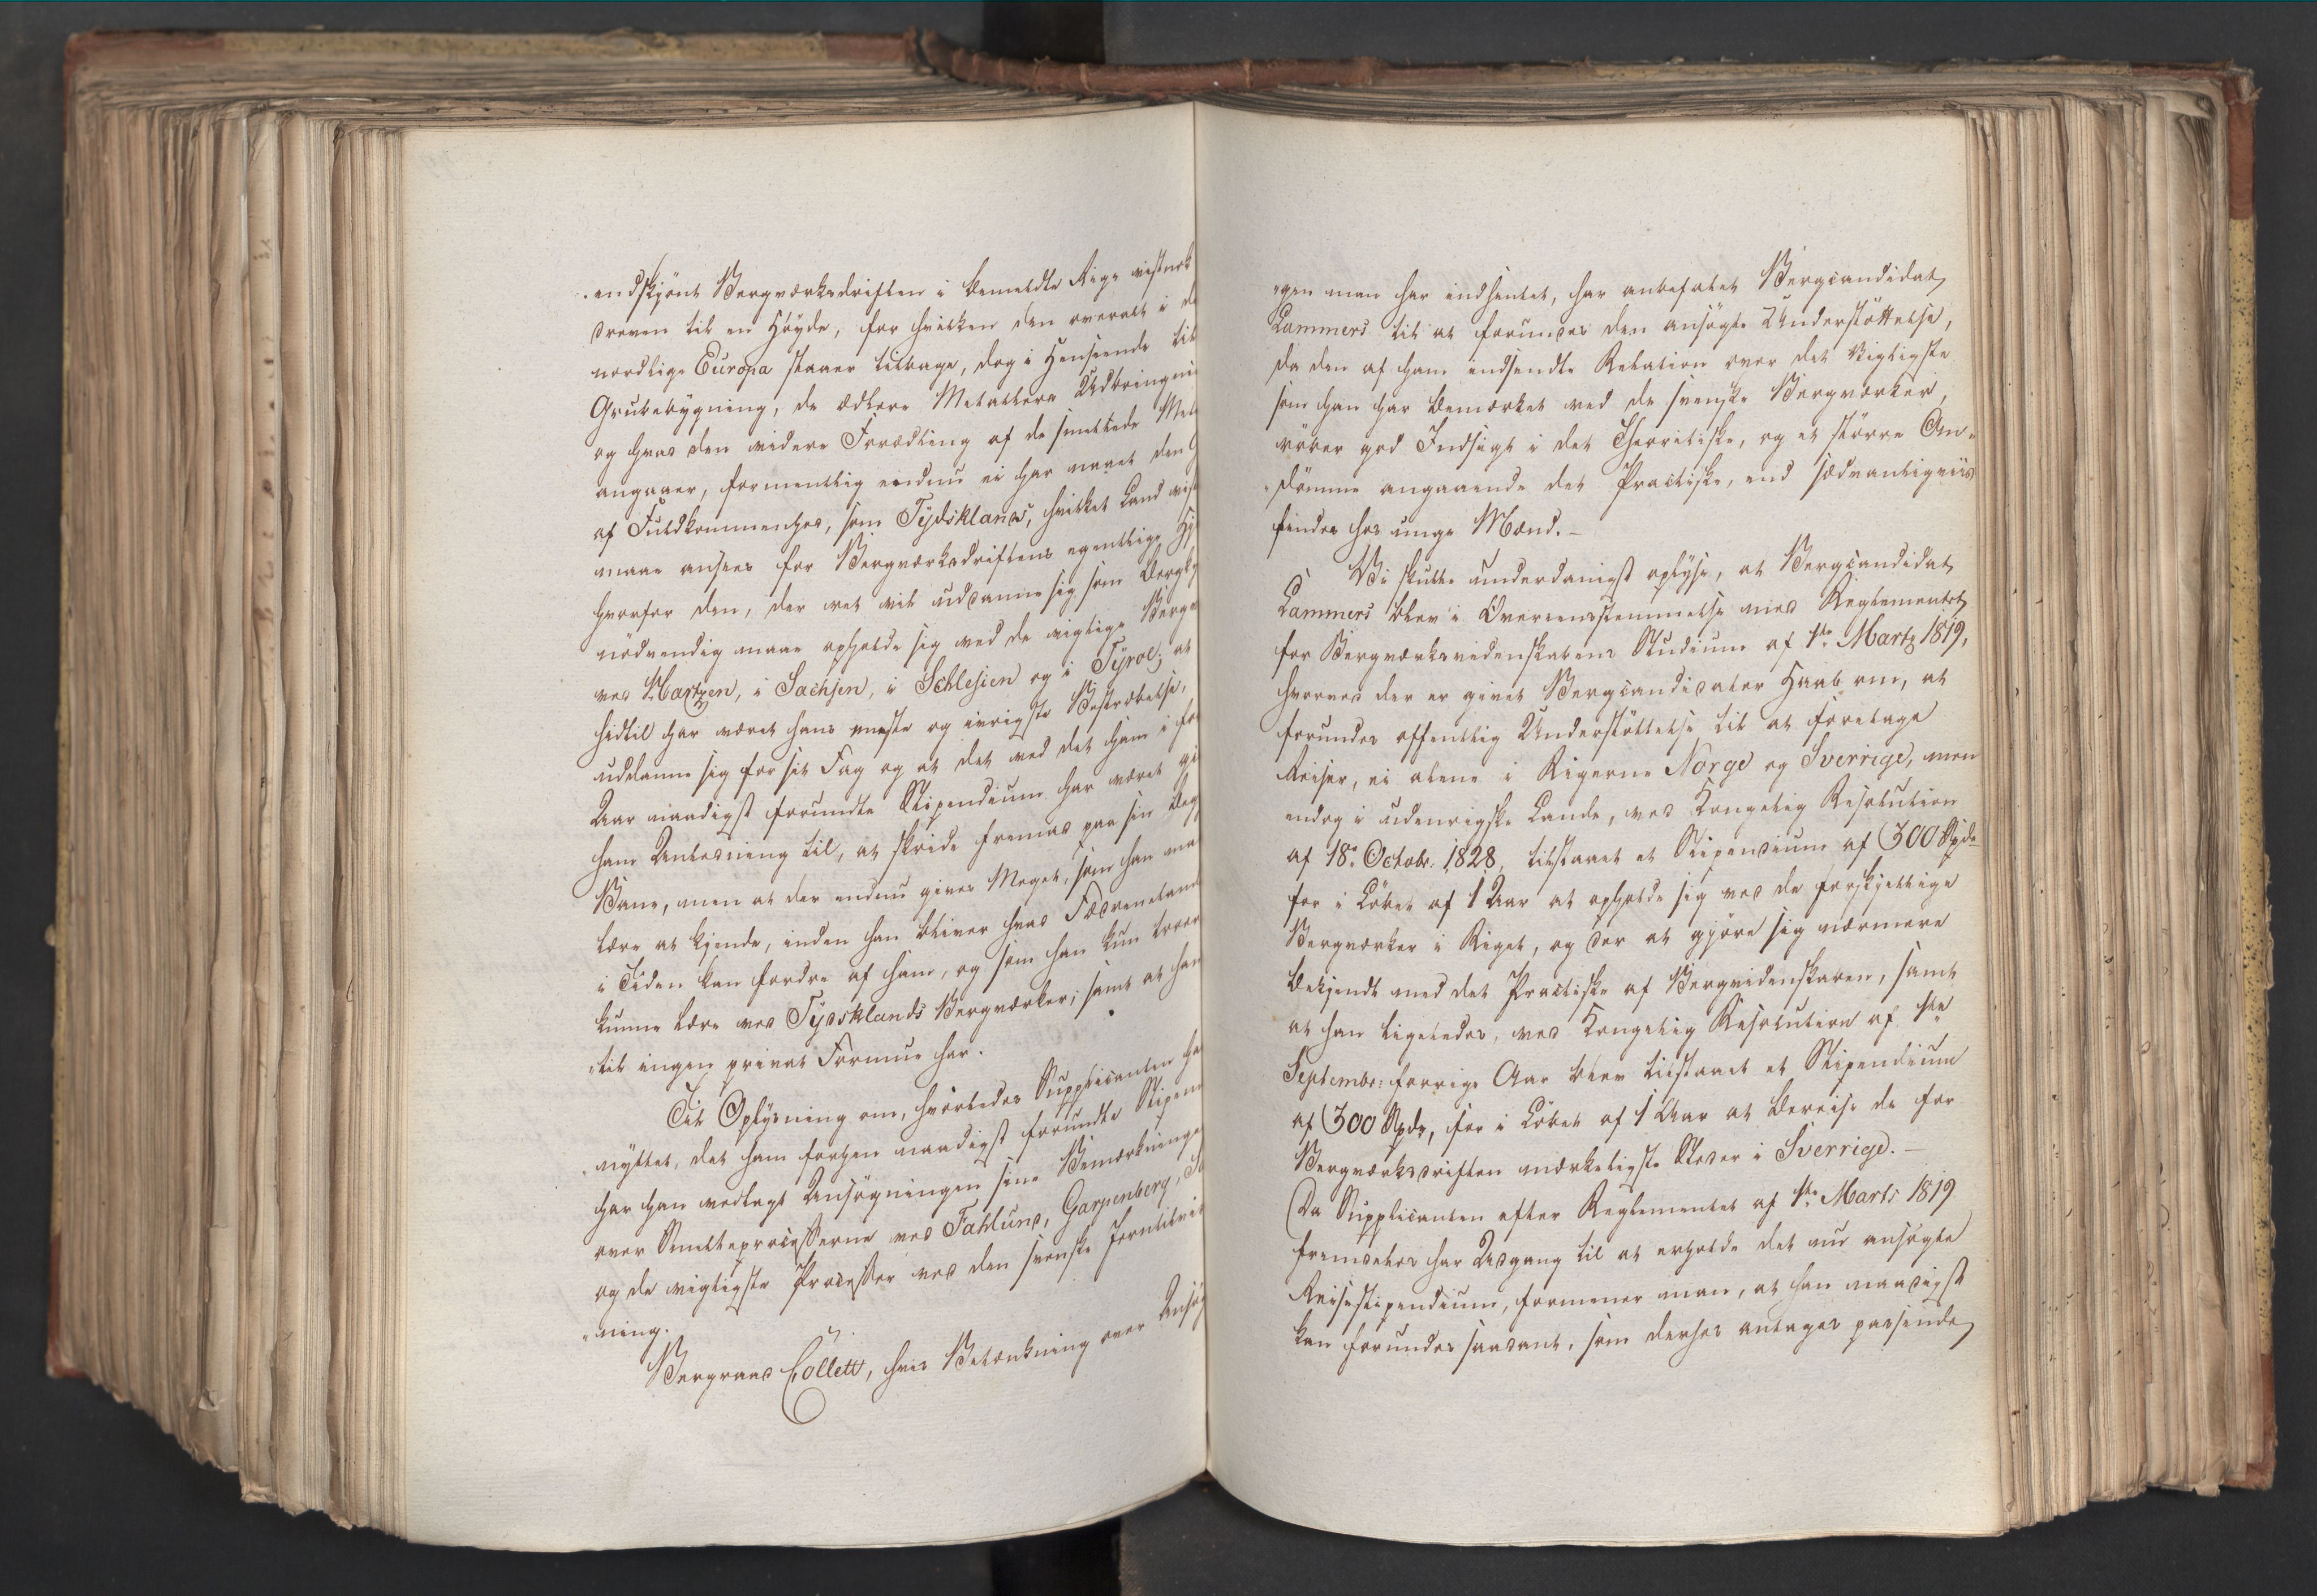 endskjönt Bergværksdriften i bemeldte Rige vistnok
dreven til en Höyde, for hvilken den overalt i de
nordlige Europa staaer tilbage, dog i Henseende til
Grubebygning, de ædlere Metallers Udbringni
og hvad den videre Foredling af de smeltede Met
angaaer, formentlig endnu ei har naaet den G
af Fuldkommenhed, som Tydsklands, hvilket Land vist
maae ansees for Bergværksdriftens egentlige Hj
hvorfor den, der ret vil uddanne sig som Berg
nödvendig maae opholde sig ved de vigtige Berg
ved Hartzen, i Sachsen, i Schlesien og i Tyrol; at
hidtil har været hans eneste og ivrigste Bestræbelse,
uddanne sig for sit Fag og at det ved det ham i for
Aar naadigst forundte Stipendium har været gi
ham Anledning til, at skride fremad paa sin beg
Bane, men at der endnu gives Meget, som han maa
lære at kjende, inden han bliver hvad Fædreneland
i Tiden kan fordre af ham, og som han kun troer
kunne lære ved Tydsklands Bergværker; samt at han
til ingen privat Formue har.
Til Oplysning om, hvorledes Supplicanten ha
nyttet, det ham forhen naadigst forundte Stipen
har han vedlagt Ansögningen sine Bemærkninge
over Smelteprocesserne ved Fahlund, Garpenberg, S
og de vigtigste Processer ved den svenske Jerntilvir
"ning.
Bergraad Collett, hvis Betænkning over Ansög
"gen man har indhentet, har anbefalet Bergcandidat
Lammers til at forundes den ansögte Understöttelse,
da den af ham indsendte Relation over det Vigtigste
som han har bemærket ved de svenske Bergværker,
röber god Indsigt i det Theoretiske, og et större Om=
"dömme angaaende det Practiske, end sædvanligviis
findes hos unge Mænd. –
Vi skulle underdanigst oplyse, at Bergcandidat
Lammers blev i Overeensstemmelse med Reglementet
for Bergværksvidenskabens Studium af 1ste Martz 1819,
hvorved der er givet Bergcandidater Haab om, at
forundes offentlig Understöttelse til at foretage
Reiser, ei alene i Rigerne Norge og Sverrige, men
endog i udenrigske Lande, ved Kongelig Resolution
af 18de Octobr. 1828, tilstaaet et Stipendium af 300 Spd
for i Löbet af 1 Aar at opholde sig ved de forskjellige
Bergværker i Riget, og der at gjöre sig nærmere
bekjendt med det Practiske af Bergvidenskaben, samt
at han ligeledes, ved Kongelig Resolution af 1ste
Septembr: forrige Aar blev tilstaaet et Stipendium
af 300 Spd, for i Löbet af 1 Aar at bereise de for
Bergværksdriften mærkeligste Steder i Sverrige. –
Da Supplicanten efter Reglementet af 1ste Marts 1819
fremdeles har Adgang til at erholde det nu ansögte
Reisestipendium, formener man, at han naadigst
kan forundes saadant, som derhos antages passende